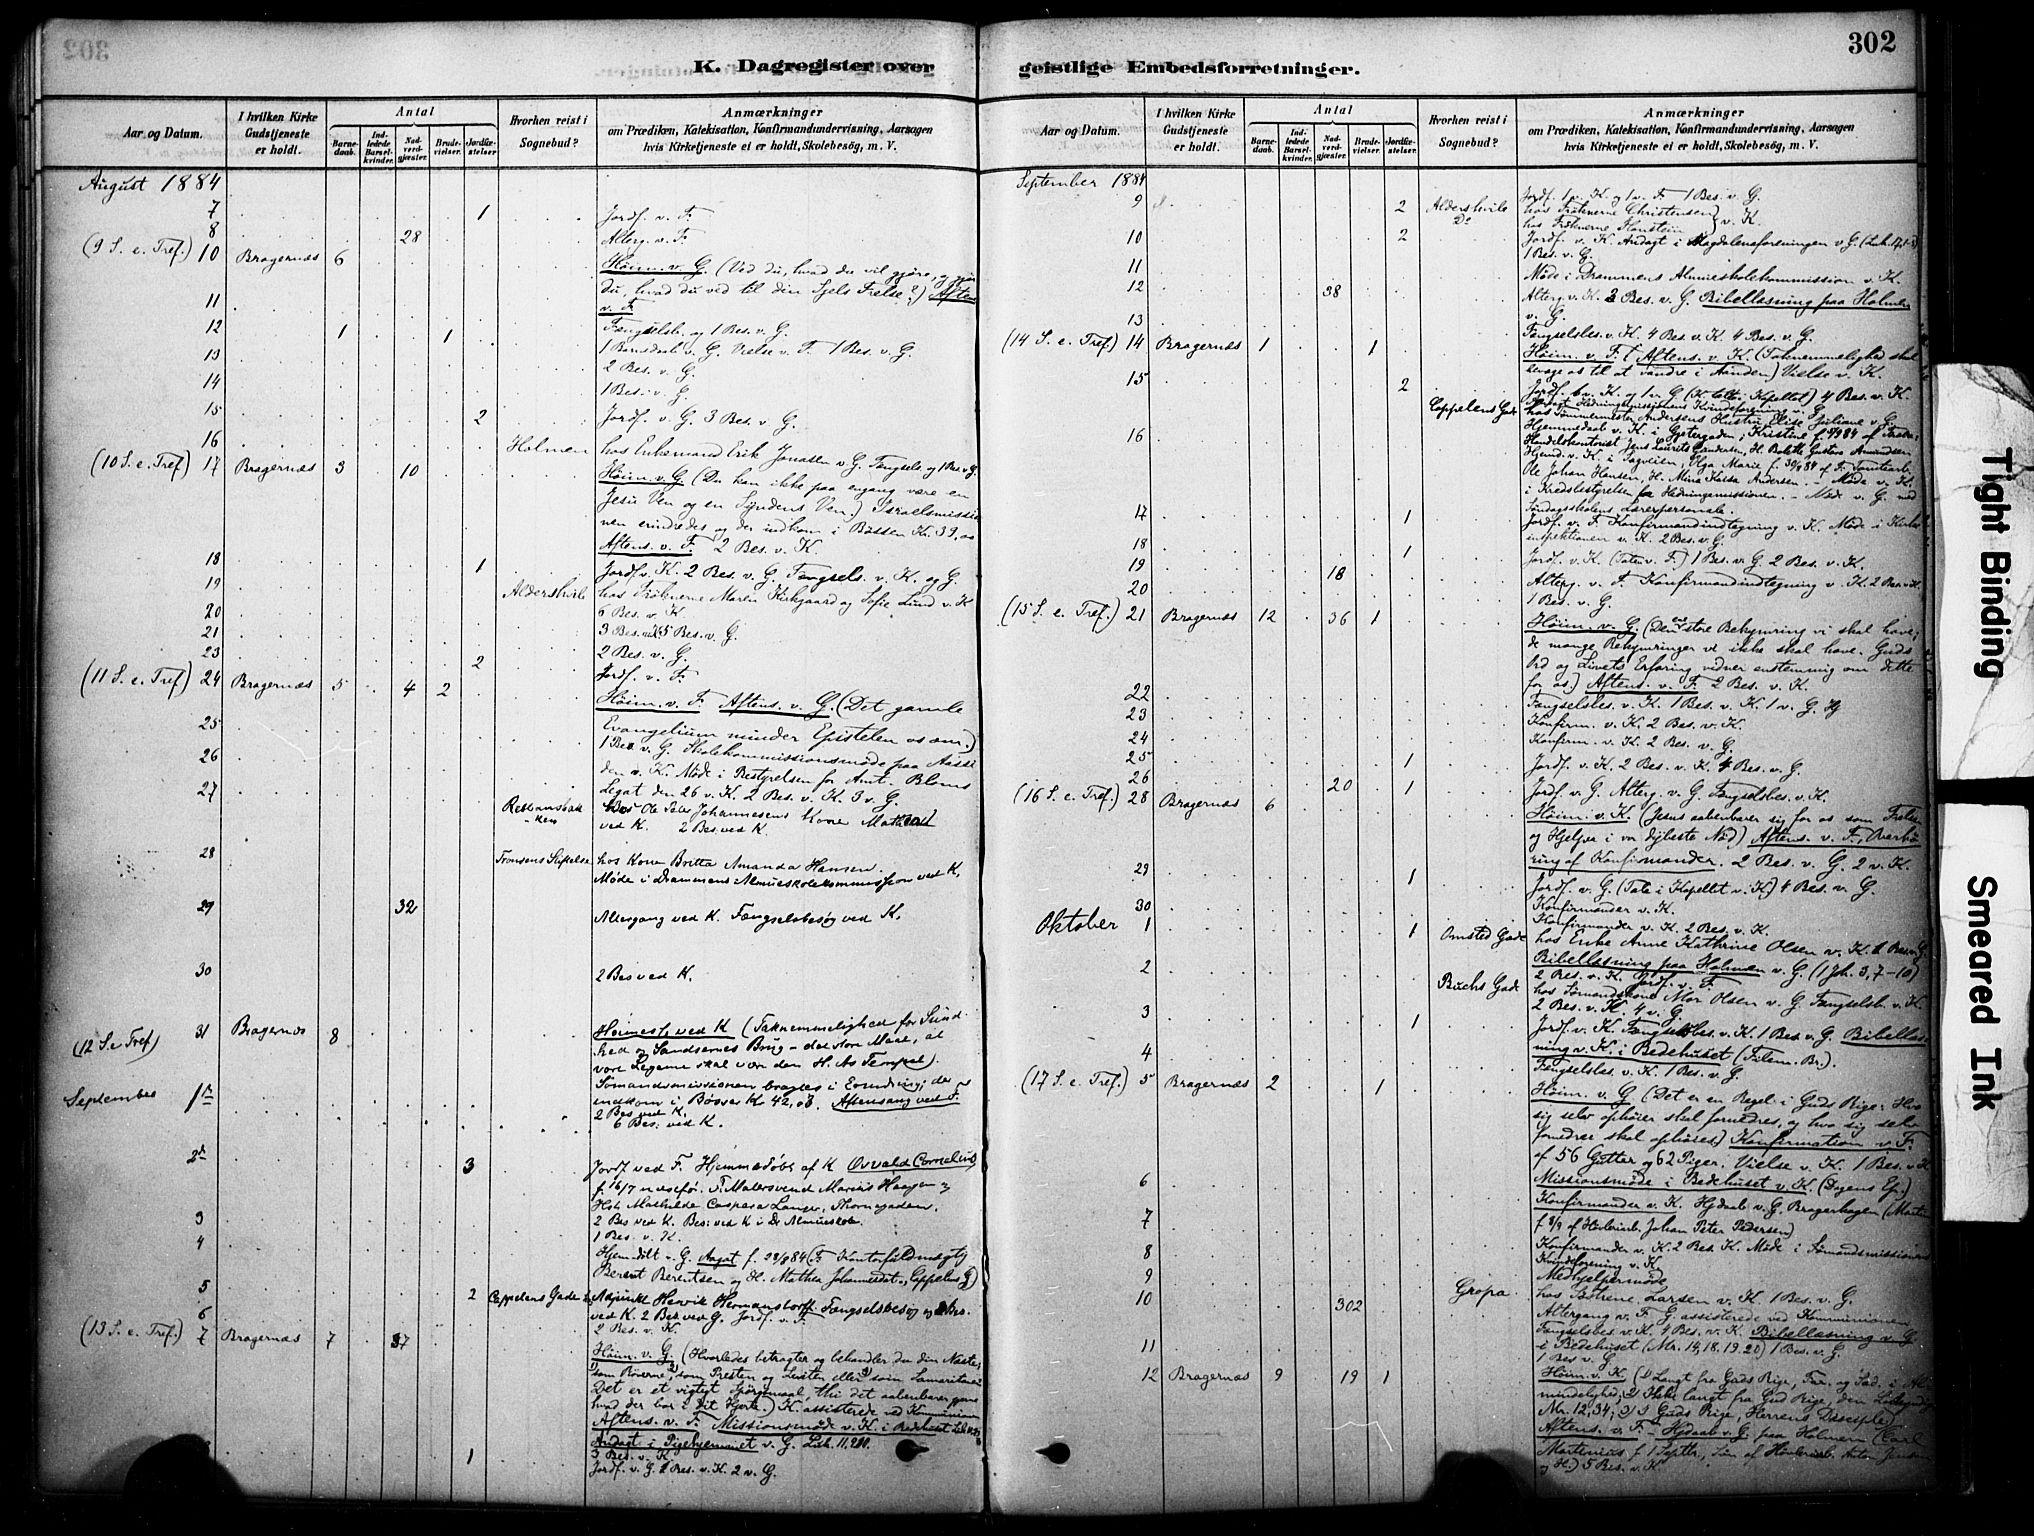 302
K. Dagregister over geistlige Embedsforretninger.
Aar og Datum.
I hvilken Kirke Gudstjeneste er holdt.
Antal
Barnedaab.
Indledede Barselkvinder.
Nadverdgjæster.
Brudevielser.
Jordfæstelser.
Hvorhen reist i Sognebud?
Anmærkninger
om Prædiken, Katekisation, Konfirmandundervisning, Aarsagen
hvis Kirketjeneste ei er holdt, Skolebesög, m. V.
August 1884
7 1 Jordf. v. F.
8 28 Alterg. v. F.
(9 S. e. Tref.) 10 Bragernæs 6 Höim. v. G. (Ved du, hvad du vil gjøre, og gjør
du, hvad du ved til din Sjels Frelse?) Aftens
v. F.
11 Fængselsb. og 1 Bes. v. G.
12 1 1 1 Barnedaab v. G. Vielse v. F. 1 Bes. v. G.
13 2 Bes. v. G.
14 1 Bes. v. G.
15 2 Jordf. v. G. 3 Bes. v. G.
16 Holmen hos Enkemand Erik Jonassen v. G. Fængsels. og 1 Bes. v. G.
(10 S. e. Tref.) 17 Bragernæs 3 10 Höim. v. G. (Du kan ikke paa engang være en
Jesu Ven og en Syndens Ven.) Israelsmissio
nen erindredes og der indkom i Bøssen Kr. 39,
Aftens. v. F. 2 Bes. v. K.
18 1 Jordf. v. K. 2 Bes. v. G. Fængsels. v. K. og G.
19 Aldershvile hos Frøknerne Maren Kirkgaard og Sofie Lund v. K
20 6 Bes. v. K
21 3 Bes. v. K 5 Bes. v. G.
23 2 2 Bes. v. G.
Jordf. v. F.
(11 S. e. Tref.) 24 Bragernæs 5 4 2 Höim. v. F. Aftens. v. G. (Det gamle
Evangelium minder Epistelen os om.)
25 1 Bes. v. G. Skolekommissionsmøde paa Aassi
26 den v. K. Møde i Bestyrelsen for Amt. Bloms
27 Legat den 26 v. K. 2 Bes. v. K. 3 v. G.
hos Ole Peter Johannesens Kone Mathea
ved K. 2 Bes. ved K.
28 Tronsens Stiftelse hos Kone Britta Amanda Hansen.
Møde i Drammens Almueskolekommission ved K.
29 32 Altergang ved K. Fængselsbesøg ved K.
30 2 Bes ved K.
(12 S. e. Tref) 31 Bragernæs 8 Höimesse ved K (Taknemmelighed for Sund
hed og Sandsernes Brug - det store Maal, at
vore Legeme skal være den H. As Tempel).
Sömandsmissionen bragtes i Erindring; der
indkom i Bøsser Kr 42, Aftensang ved F.
2 Bes ved K.
September 1ste 6 Bes. ved K.
2den 3 Jordf ved F. Hjemmedöbt af K Osvald Cornelius
f. 16/7 Malersvend Marius Haagen og
Mathilde Caspara Langer, Thornegaden.
2 Bes ved K. Bes. ved K i Dr Almueskole
3 1 Bes. v. K.
4 Hjemdöbt v. G. August f. 28/8 84 (F. Kontorfuldmægtig
Berent Berentsen og H. Mathea Johannesdat., Cappelens G)
5 2 Cappelens Gade Adjunkt Henrik Hermanstorff. Fængselsbesøg og
ved K. 2 Bes. ved G. Jordf. v. F.
6 2 Bes. v. K.
(13 S. e. Tref.) 7 Bragernæs 7 37 Höim. v. G. (Hvorledes betragter og behandler du din Næste,
som Røverne, som Presten og Leviten eller som Samaritanen?
Det er et vigtigt Spørgsmaal, thi det aabenbarer
hvad der bor i Dit Hjerte.) K. assisterede ved Kommunionen
Aftens. v. F. Missionsmøde v. K. i Bedehuset
Andagt i Pigehjemmet v. G. Luk. 11,
3 Bes. v. K.
1 Jordf. v. G. 2 Bes. v. K. 2 v. G.
302
Aar og Datum.
I hvilken Kirke Gudstjeneste er holdt.
Antal
Barnedaab.
Indledede Barselkvinder.
Nadverdgjæster.
Brudevielser.
Jordfæstelser.
Hvorhen reist i Sognebud?
Anmærkninger
om Prædiken, Katekisation, Konfirmandundervisning, Aarsagen
hvis Kirketjeneste ei er holdt, Skolebesög, m. V.
September 1884
9 2 Aldershvile Jordf. 1 v. K. og 1 v. F. 1 Bes. v. G.
Do hos Frøknerne Christensen
hos Frøknerne Hanstein v. K
10 2 Jordf. v. K. Andagt i Magdalenaforeningen v. G.
1 Bes. v. G.
11 Møde i Drammens Almueskolekommission v. K.
12 38 Alterg. v. K. 3 Bes. v. G. Bibellæsning paa Holmen
v. G.
13 Fængselsbes. v. K. 4 Bes. v. K. 4 Bes. v. G.
(14 S. e. Tref.) 14 Bragernæs 1 1 Höim. v. F. Aftens. v. K. (Taknemmelighed skal
bevæge os til at vandre i Aanden) Vielse v. K.
15 2 Jordf. 1 v. K. og 1 v. G. (K. talte i Kapellet) 4 Bes. v. K.
Andagt Hedningemissionens Kvindeforening v. G
Cappelens Gade hos Tømmermester Andersens Hustru Elise Juliane v. G.
16 Hjemmedaab v. K. i Gjetergaden, Kristine
Handelskontorist Jens Laurits Gundersen, H. Bolette Gustava Amundsen
Hjemd. v. K. i Sagveien, Olga Marie f. 30/8 84 af F. Tomtearb.
Ole Johan Hansen, H. Mina Kaisa Andersen. - Møde v. K.
i Kredsbestyrelsen for Hedningemissionen. - Møde v. G. ved
Søndagsskolens Lærerpersonale.
17 1 Jordf. v. F. Konfirmandindtegning v. K. Møde i Kirke
inspektionen v. K. 2 Bes. v. G.
18 1 Jordf. v. K. (Talen v. F.) 1 Bes. v. G. 2 Bes. v. K.
19 18 Alterg. v. F. Konfirmandindtegning v. K. 2 Bes. v. K.
20 1 Bes. v. G.
(15 S. e. Tref.) 21 Bragernæs 12 36 1 Höim. v. G. (Den ene store Bekymring vi skal have;
de mange Bekymringer vi ikke skal have. Guds
Ord og Livets Erfaring vidner enstemmig om dette
for os.) Aftens. v. F. 2 Bes. v. K.
22 Fængselsbes. v. K. 1 Bes. v. K. 1 v. G.
23 Konfirm. v. K. 2 Bes. v. K.
24 Konfirm. v. K. 2 Bes. v. G.
25 1 Jordf. v. K. 2 Bes. v. K. 4 Bes. v. G.
26 20 1 Jordf. v. G. Alterg. v. G. Fængselsbes. v. K.
(16 S. e. Tref.) 28 Bragernæs 6 Höim. v. K. (Jesus aabenbarer sig for os som Frelser
og Hjelper i vor dybeste Nød) Aftens. v. F., Overhø
ring af Konfirmander. 2 Bes. v. G. 2 v. K.
29 1 Jordf. v. G. (Tale i Kapellet v. K) 4 Bes. v. G.
30 Konfirmander v. K.
Oktober 1 1 Konfirmander v. K. 2 Bes. v. K.
Omsted Gade hos Enke Anne Kathrine Olsen v. K.
2 Bibellæsning paa Holmen v. G. (1 Joh. 3, 7-10)
2 Bes. v. K. Jordf. v. F.
Buchs Gade hos Sømandskone Mor Olsen v. G. Fængselsb. v. K.
2 Bes. v. K. 4 v. G.
3 1 Jordf. v. K. Fængselsbes. v. K. 1 Bes. v. G. Bibellæs
ning v. K. i Bedehuset (Filem. Br.).
4 Fængselsbes. v. K. 1 Bes. v. G.
(17 S. e. Tref.) 5 Bragernæs 2 1 Höim. v. G (Det er en Regel i Guds Rige: Hvo
sig selv ophøier skal fornedres, og hvo sig selv
fornedrer skal ophøies.) Konfirmation v. F.
af 56 Gutter og 62 Piger. Vielse v. K. 1 Bes. v. K
Missionsmøde i Bedehuset v. K. (Dagens Ep.)
6 Konfirmander v. K. Hjdaab v. G. Bragerhagen (Martin
7 f 8/9 af Johan Peter Pedersen)
8 Konfirmander v. K. 2 Bes. K. Møde i Sømandsmissionens
Kvindeforening v. K
9 Medhjelpermøde
10 302 Gropa. hos Larsen v. K. 1 Bes. v. G.
Altergang v. F. G. assisterede ved Kommunionen
Fængselsbes. v. K. 4 Bes. v. K. Bibellæsning v. G.
i Bedehuset (Mr. 14, 18. 19. 20) 1 Bes. v. G.
11 1 Bes v. G
12 Bragernæs 9 19 1 Höim. v. K. (1) Langt fra Guds Rige, Far. og Sad. i Al
mindelighed; 2) Ikke langt fra Gud Rige, den Lovkyndige
Mr. 12, 34; 3) I Guds Rige, Herrens Disciple)
Aftens. v. F. Hjdaab v. G. paa Holmen (Carl
Martenius f 1 Septbr., Søn af Anton Jensen
og H.) 5 Bes. v. K.
Tight Binding
Smeared Ink